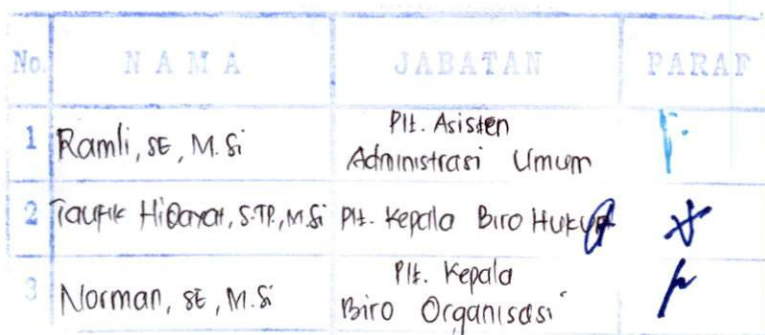 No. NAMA JABATAN PARAF
1 Ramli, SE, M.Si Plt. Asisten
Administrasi Umum
2 Taufik Hidayat, S.TP., M.Si Plt. Kepala Biro Hukum
3 Norman, SE, M.Si Plt. Kepala
Biro Organisasi